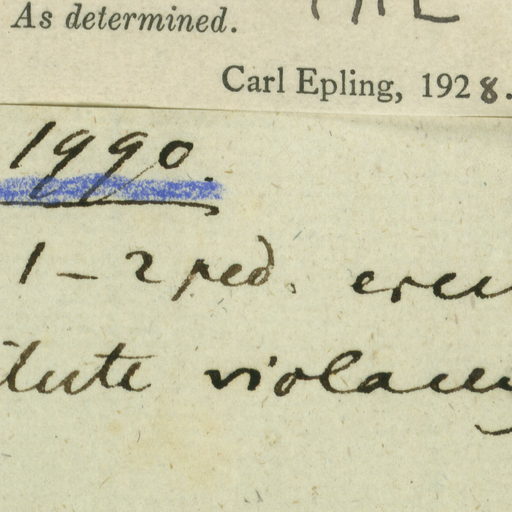 As determined.
Carl Epling, 1928.
1990.
1–2 ped. erec
violace